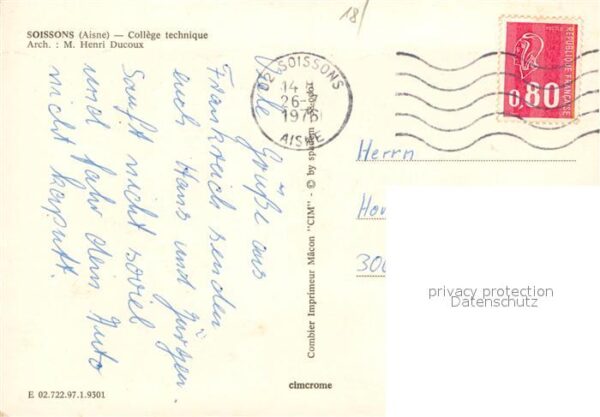 SOISSONS (Aisne) — Collège technique
Arch. : M. Henri Ducoux
18/
02 SOISSONS
14 H
26-
1976
AISNE
REPUBLIQUE FRANÇAISE
0,80
Viele Grüße aus
Frankreich senden
euch Hans und Jürgen.
Sauft nicht soviel
und fahr dem Auto
nicht kaputt.
Combier Imprimeur Mâcon "CIM" - © by
Herrn
300
privacy protection
Datenschutz
cimcrome
E 02.722.97.1.9301